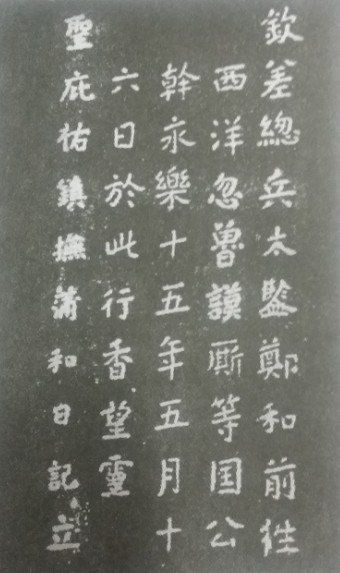 欽差總兵太監鄭和前徃
西洋忽魯謨厮等国公
幹永樂十五年五月十
六日於此行香望靈
聖庇祐鎮撫蒲和日記立